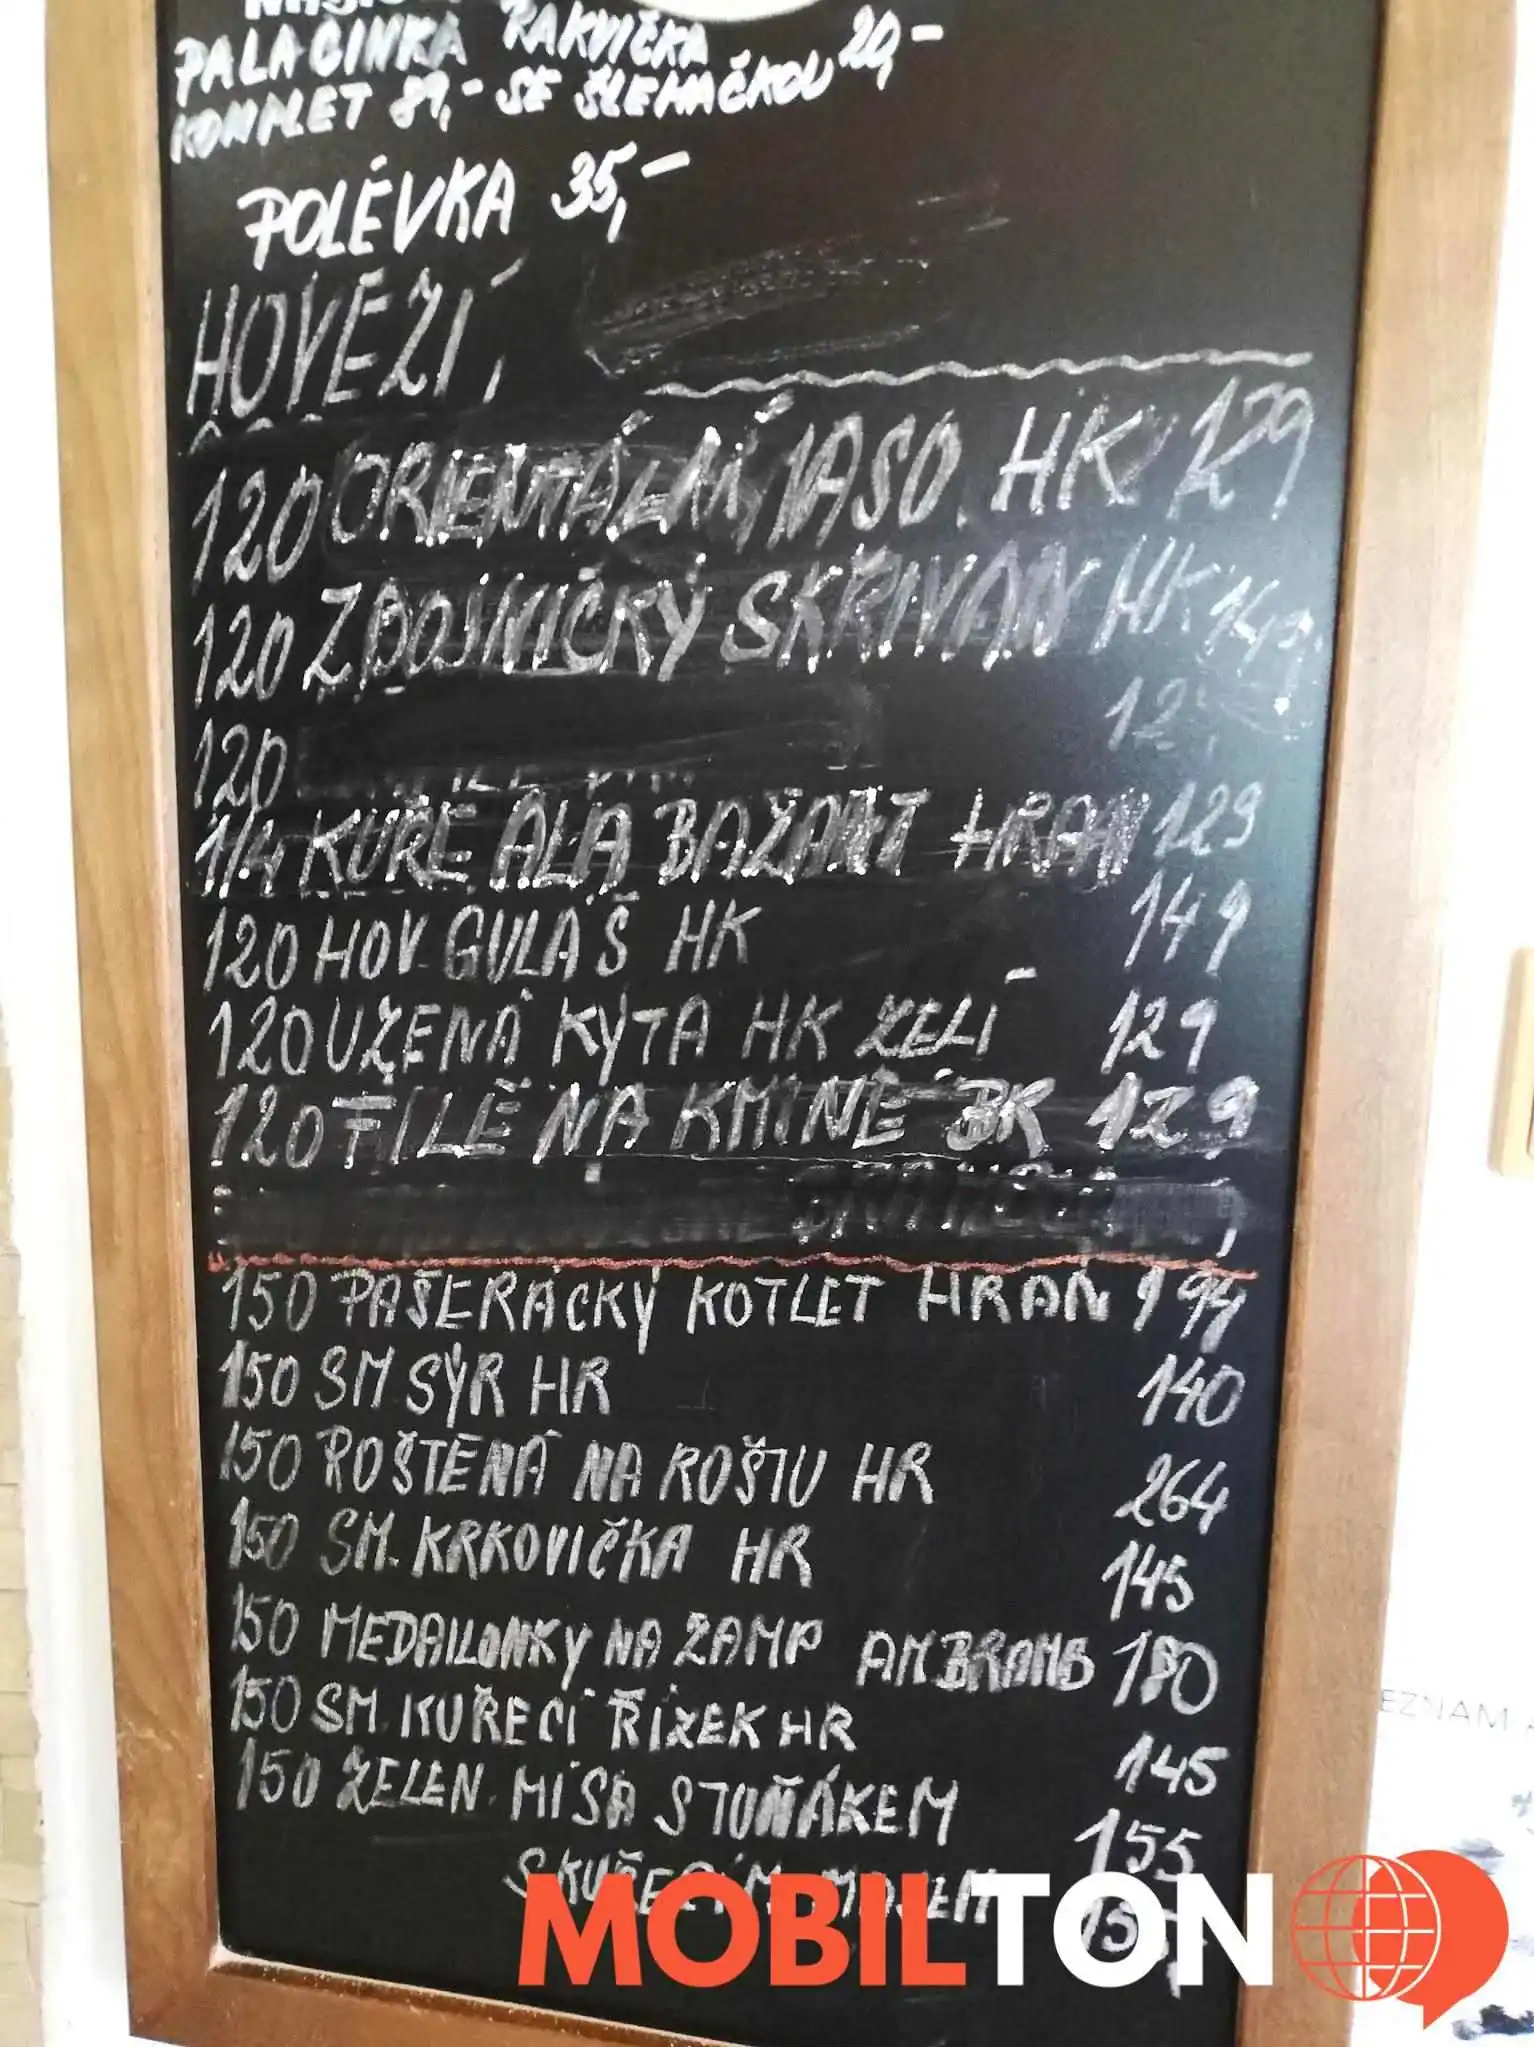 PALAČINKA RAKVIČKA
KOMPLET 89,- SE ŠLEHAČKOU 20,-
POLÉVKA 35,-
HOVĚZÍ,
120 ORIENTÁLNÍ MASO HK 129
120 ZBOJNICKÝ SKŘIVAN HK 149
120
1/4 KUŘE ALA BAŽANT HRAN 129
120 HOV. GULÁŠ HK 149
120 UZENÁ KÝTA HK ZELÍ 129
120 FILÉ NA KMÍNĚ BK 129
150 PAŠERÁCKÝ KOTLET HRAN 194
150 SM SÝR HR 140
150 ROŠTĚNÁ NA ROŠTU HR 264
150 SM. KRKOVIČKA HR 145
150 MEDAILONKY NA ŽAMP AMBRAMB 180
150 SM. KUŘECÍ ŘÍZEK HR 145
150 ZELEN. MÍSA S TUŇÁKEM 155
EZNAM A
MOBILTON